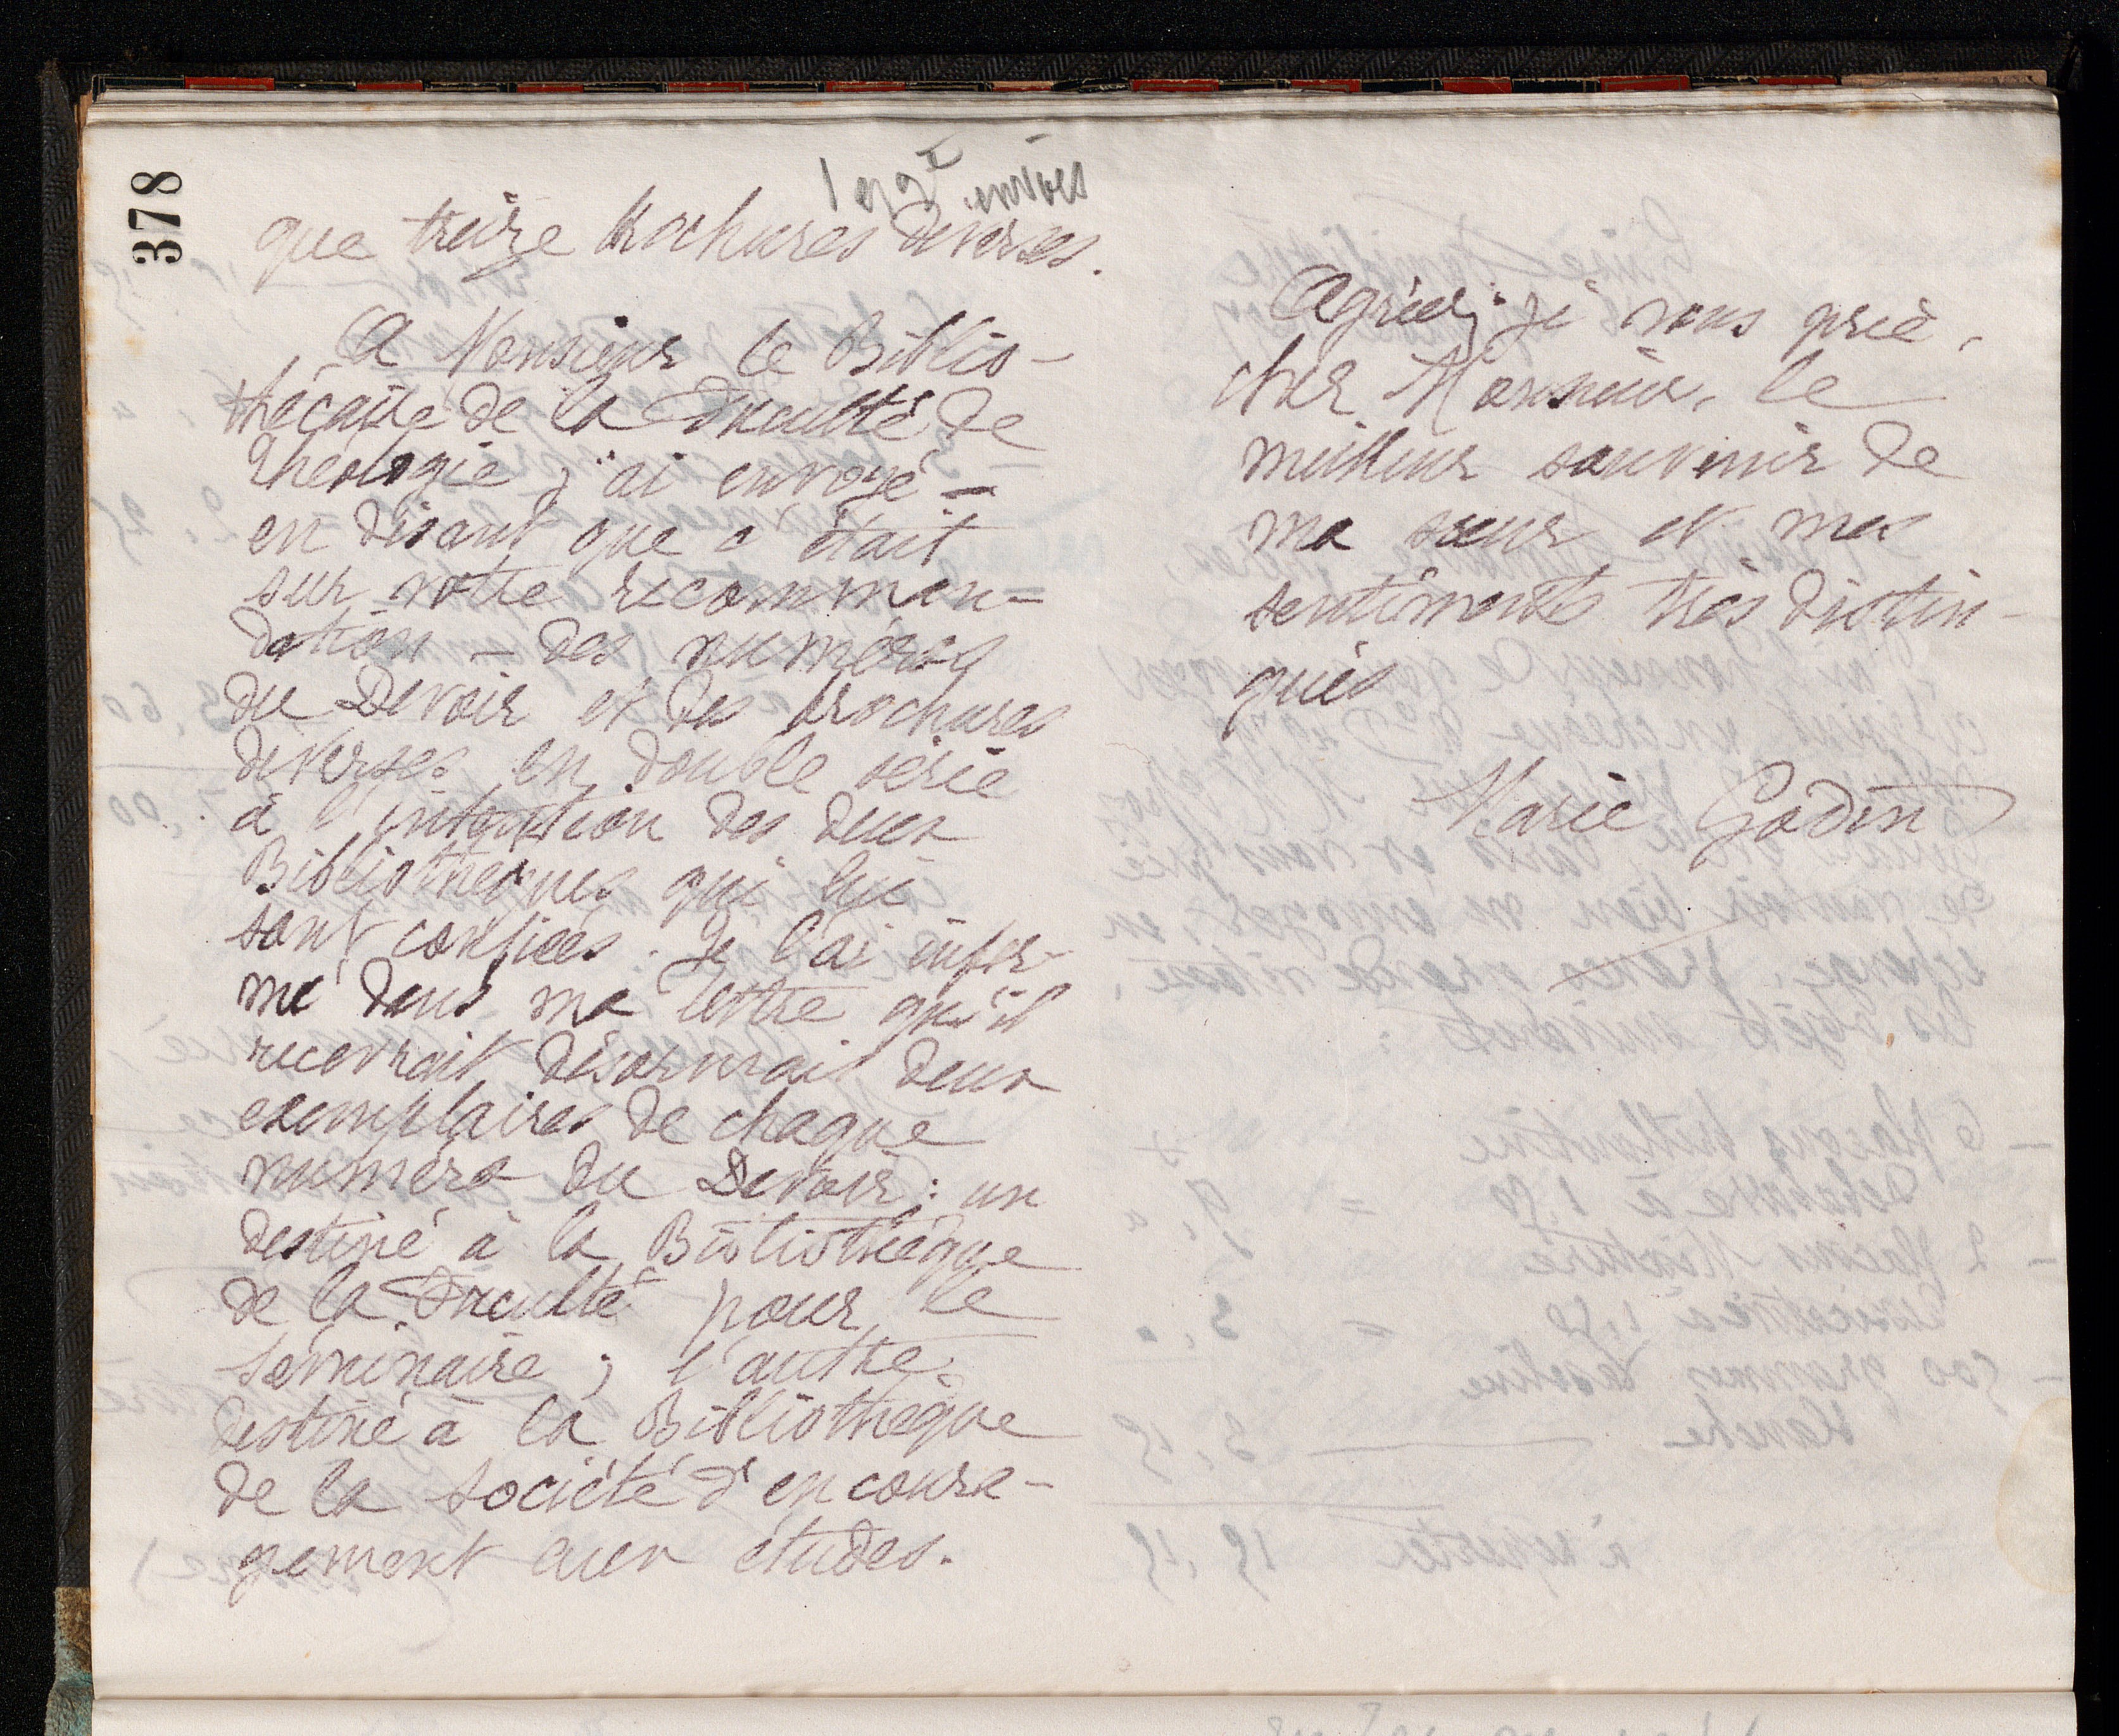 378
envoiés
que treize brochures diverses.
A Monsieur le Biblio-
thécaire de la Faculté de
Théologie j'ai envoyé —
en disant que c'était
sur votre recomman-
dation — des numéros
du Devoir et des brochures
diverses en double série
à l'intention des deux
Bibliothèques qui lui
sont confiées. Je l'ai infor-
mé dans ma lettre qu'il
recevrait désormais deux
exemplaires de chaque
numéro du Devoir : un
destiné à la Bibliothèque
de la Faculté pour le
Séminaire ; l'autre
destiné à la Bibliothèque
de la Société d'encoura-
gement aux études.
Agréez, je vous prie,
cher Monsieur, le
meilleur souvenir de
ma sœur et mes
sentiments très distin-
gués
Marie Godin